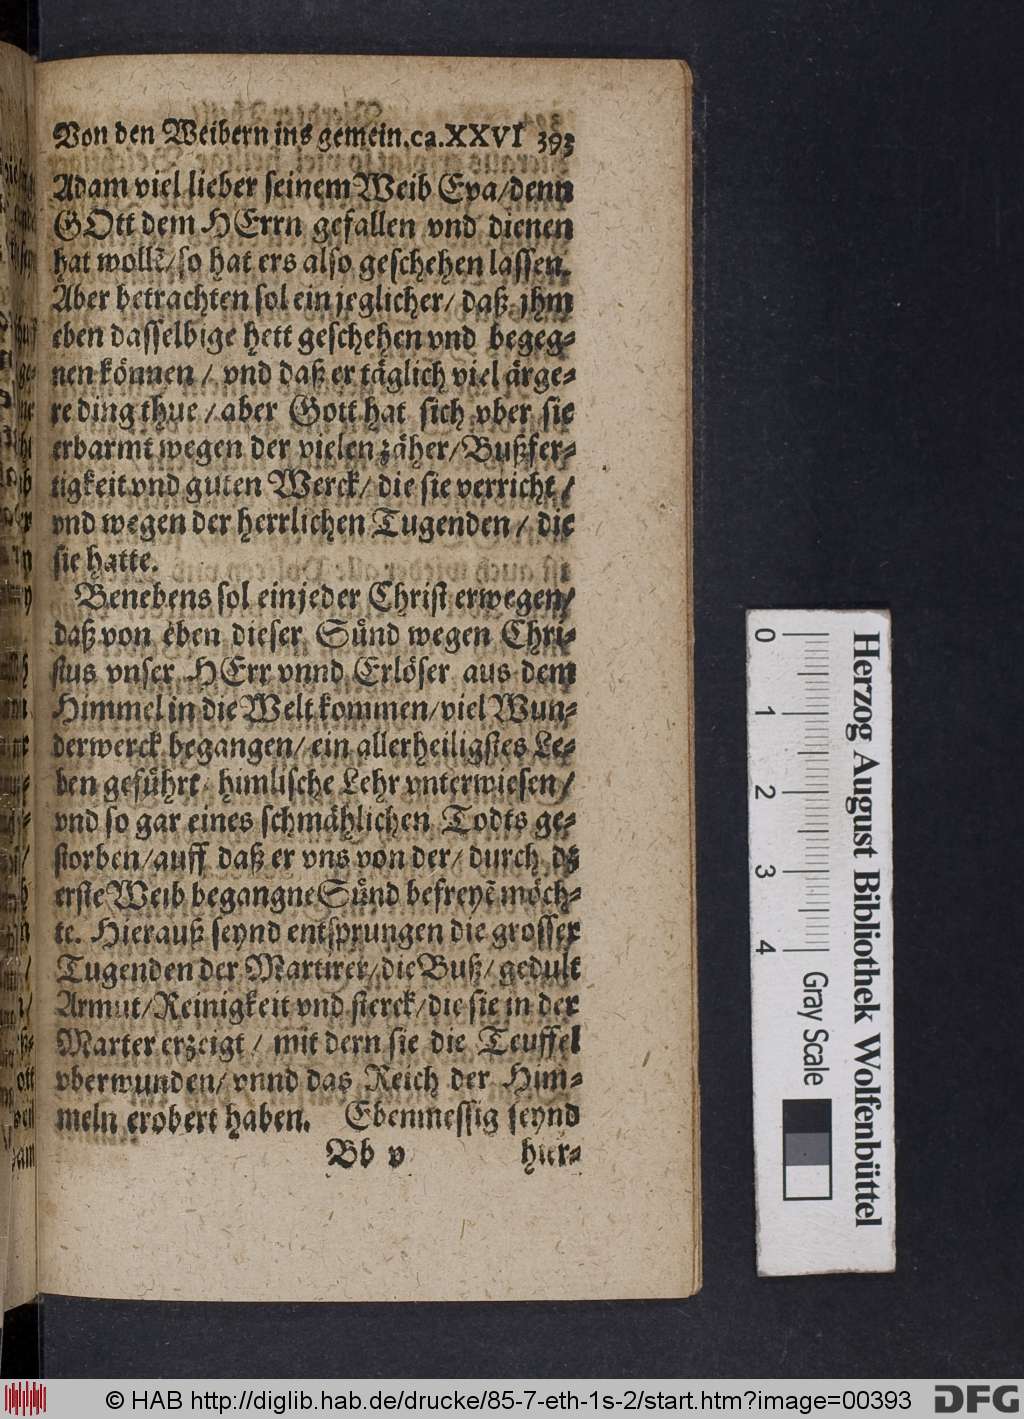 Von den Weibern ins gemein. ca. XXVI 393
Adam viel lieber seinem Weib Eva/denn
GOtt dem HErrn gefallen vnd dienen
hat wollẽ/so hat ers also geschehen lassen.
Aber betrachten sol ein jeglicher/ daß jhm
eben dasselbige hett geschehen vnd begeg-
nen können / vnd daß er täglich viel ärge-
re ding thue / aber Gott hat sich vber sie
erbarmt wegen der vielen zäher/Bußfer-
tigkeit vnd guten Werck/ die sie verricht /
vnd wegen der herrlichen Tugenden / die
sie hatte.
Benebens sol ein jeder Christ erwegen/
daß von eben dieser Sünd wegen Chri-
stus vnser HErr vnnd Erlöser aus dem
Himmel in die Welt kommen/viel Wun-
derwerck begangen/ ein allerheiligstes Le-
ben geführt/ himlische Lehr vnterwiesen /
vnd so gar eines schmählichen Todts ge-
storben/auff daß er vns von der/ durch dz
erste Weib begangne Sünd befreyẽ möch-
te. Hierauß seynd entsprungen die grosser
Tugenden der Martirer/die Buß/ gedult
Armut/Reinigkeit vnd sterck/die sie in der
Marter erzeigt / mit dern sie die Teuffel
vberwunden/ vnnd das Reich der Him-
meln erobert haben. Ebenmessig seynd
Bb v hier-
Herzog August Bibliothek Wolfenbüttel
0 1 2 3 4 Gray Scale
© HAB http://diglib.hab.de/drucke/85-7-eth-1s-2/start.htm?image=00393 DFG